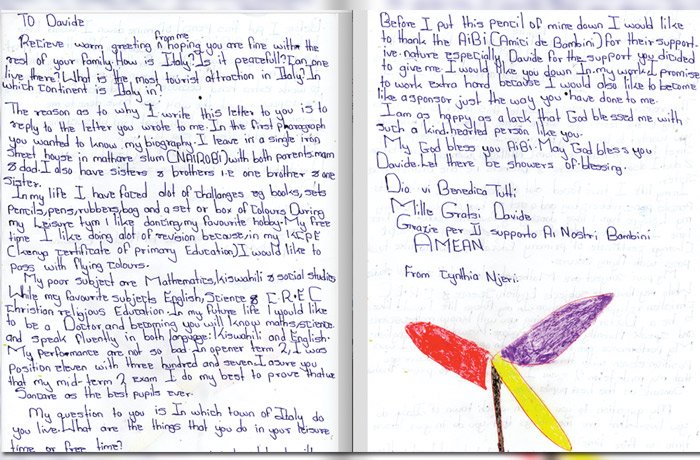 TO Davide
Recieve warm greeting from me hoping you are fine with the
rest of your family. How is Italy? Is it peacefull? Can one
live there? What is the most tourist attraction in Italy? In
which Continent is Italy in?
The reason as to why I write this letter to you is to
reply to the letter you wrote to me. In the first pharagraph
you wanted to know my biography. I leave in a single iron
street house in mathare slum (NAIROBI) with both parents. mam
& dad. I also have sisters & brothers i.e one brother & one
sister.
In my life I have faced alot of challenges eg books, sets
Pencils, pens, rubbers, bag and a set or box of Colours. During
my leisure tym I like dancing, my favourite hobby. My free
time I like doing alot of revision because, in my (KCPE
(kenya certificate of primary Education) I would like to
pass with flying Colours.
My poor subject are Mathematics, kiswahili & social studies
While my favourite subjects English, Science & C.R.E C
Christian religious Education. In my future life I would like
to be a Doctor, and becoming you will know maths, science
and speak fluently in both language: Kiswahili and English.
My performance are not so bad. In opener term 2, I was
Position eleven with three hundred and seven. I asure you
that my mid-term 2 exam I do my best to prove that we
are as the best pupils ever.
My question to you is In which town of Italy do
you live. What are the things that you do in your leisure
time or free time?
Before I put this pencil of mine down I would like
to thank the AiBi (Amici de Bambini) for their support-
ive-nature especially Davide for the support you decided
to give me. I would like you down In my work I promise
to work extra hard because I would also like to become
like a sponsor just the way you have done to me.
I am as happy as a lack that God blessed me with
such a kind-hearted person like you.
My God bless you AiBi. May God bless you
Davide. Let there be showers of blessing.
Dio vi Benedica Tutti
Mille Gratsi Davide
Grazie per Il supporto Ai Nostri Bambini
AMEAN
From Cynthia Njeri.